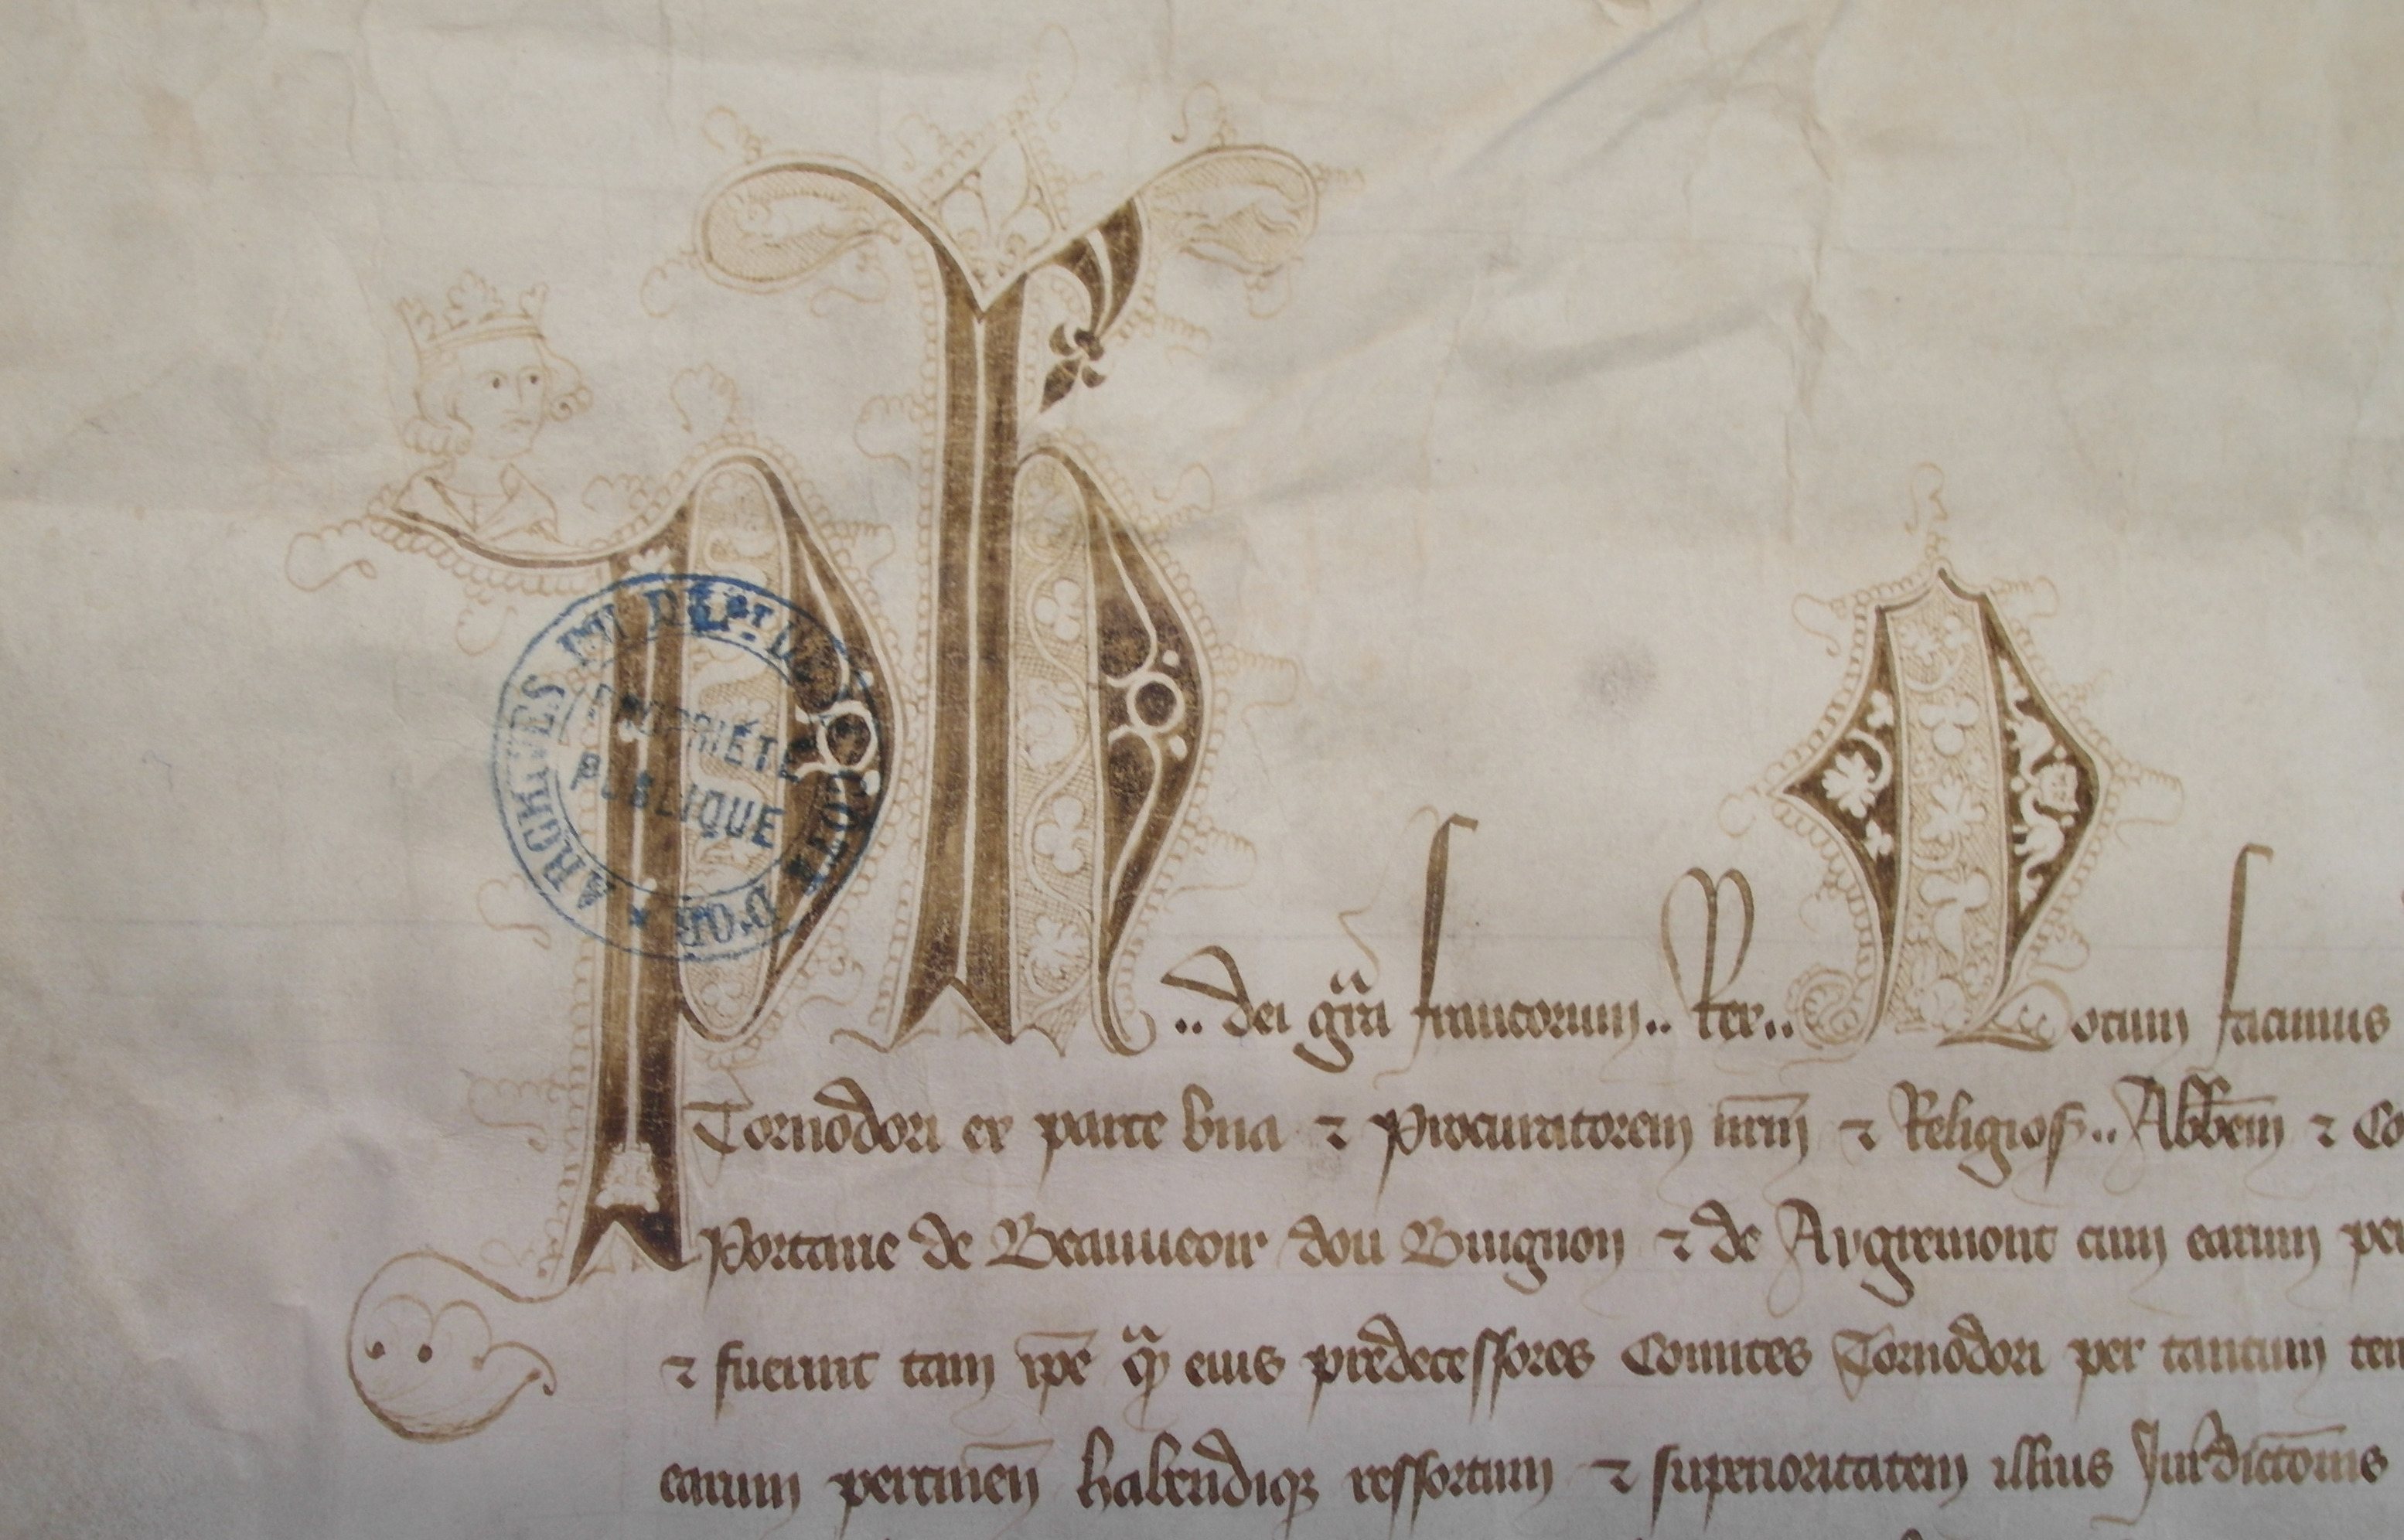 Ph.. dei gr̃a francorum.. Rex.. Notum facimus
Tornodori ex parte una ⁊ Procuratorem nr̃m ⁊ Religios.. Abbem̃ ⁊ Co
Portane de Beauueoir dou Buignon ⁊ de Argremont cum earum per
⁊ fuerunt tam ip̃e qͣ eius predecessores Comites Tornodori per tantum tem
earum pertineñ habendiqꝫ ressortum ⁊ superioritatem illius Jurdict̃onis
ARCHIVES DU DÉPT DE LA CÔTE D'OR
PROPRIÉTÉ
PUBLIQUE